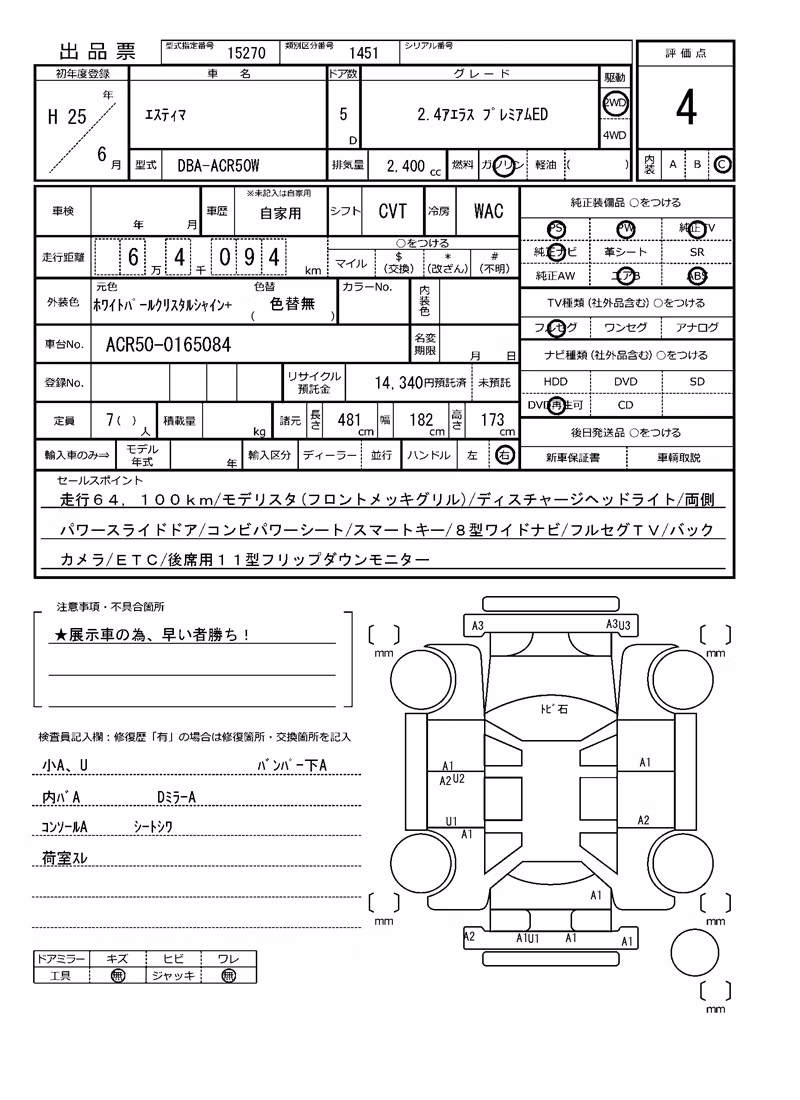 出品票 型式指定番号 15270 類別区分番号 1451 シリアル番号
評価点
初年度登録 車名 ドア数 グレード 駆動
H 25 年 6 月 エスティマ 5 D 2.4アエラス プレミアムED 2WD 4WD
4
型式 DBA-ACR50W 排気量 2,400 cc 燃料 ガソリン 軽油 ( )
内装 A B C
車検 年 月 車歴 ※未記入は自家用 自家用 シフト CVT 冷房 WAC
純正装備品 ○をつける
PS PW 純正TV
純正ナビ 革シート SR
純正AW エアB ABS
走行距離 6 万 4 千 0 9 4 km ○をつける
マイル $(交換) *(改ざん) #(不明)
外装色 元色 ホワイトパールクリスタルシャイン+ 色替 ( 色替無 ) カラーNo. 内装色
TV種類(社外品含む) ○をつける
フルセグ ワンセグ アナログ
車台No. ACR50-0165084 名変期限 月 日
ナビ種類(社外品含む) ○をつける
HDD DVD SD
DVD再生可 CD
登録No. リサイクル預託金 14,340円預託済 未預託
定員 7( )人 積載量 kg 諸元 長さ 481 cm 幅 182 cm 高さ 173 cm
後日発送品 ○をつける
新車保証書 車輌取説
輸入車のみ⇒ モデル年式 年 輸入区分 ディーラー 並行 ハンドル 左 右
セールスポイント
走行６４，１００ｋｍ/モデリスタ(フロントメッキグリル)/ディスチャージヘッドライト/両側
パワースライドドア/コンビパワーシート/スマートキー/８型ワイドナビ/フルセグＴＶ/バック
カメラ/ＥＴＣ/後席用１１型フリップダウンモニター
注意事項・不具合箇所
★展示車の為、早い者勝ち！
検査員記入欄：修復歴「有」の場合は修復箇所・交換箇所を記入
小A、U バンパー下A
内バA DミラーA
コンソールA シートシワ
荷室スレ
ドアミラー キズ ヒビ ワレ
工具 無 ジャッキ 無
A3 A3U3
mm mm
トビ石
A1 A1
A2U2
U1 A2
A1
A1
mm mm
A2 A1U1 A1 A1
mm